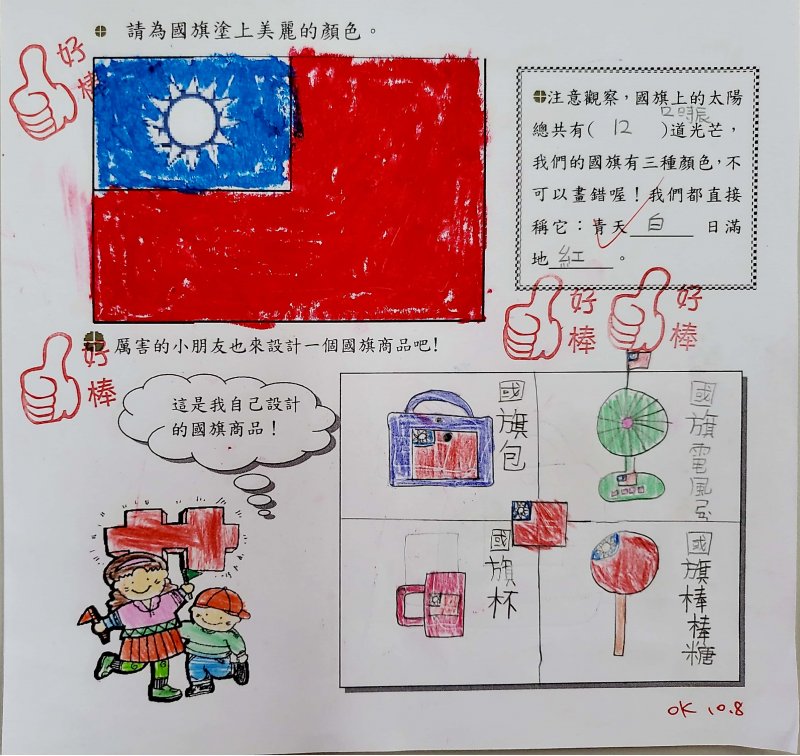 請為國旗塗上美麗的顏色。
好棒
注意觀察，國旗上的太陽
總共有( 12 )道光芒，
我們的國旗有三種顏色，不
可以畫錯喔！我們都直接
稱它：青天 白 日滿
地 紅 。
好棒
好棒
好棒
厲害的小朋友也來設計一個國旗商品吧!
這是我自己設計
的國旗商品！
國旗包
國旗電風
國旗杯
國旗棒棒糖
OK 10.8